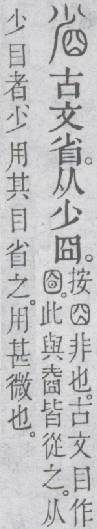 古文省。从少囧。
按囧非也。古文目作
此與皆從之。从
少目者、少用其目省之。用甚微也。